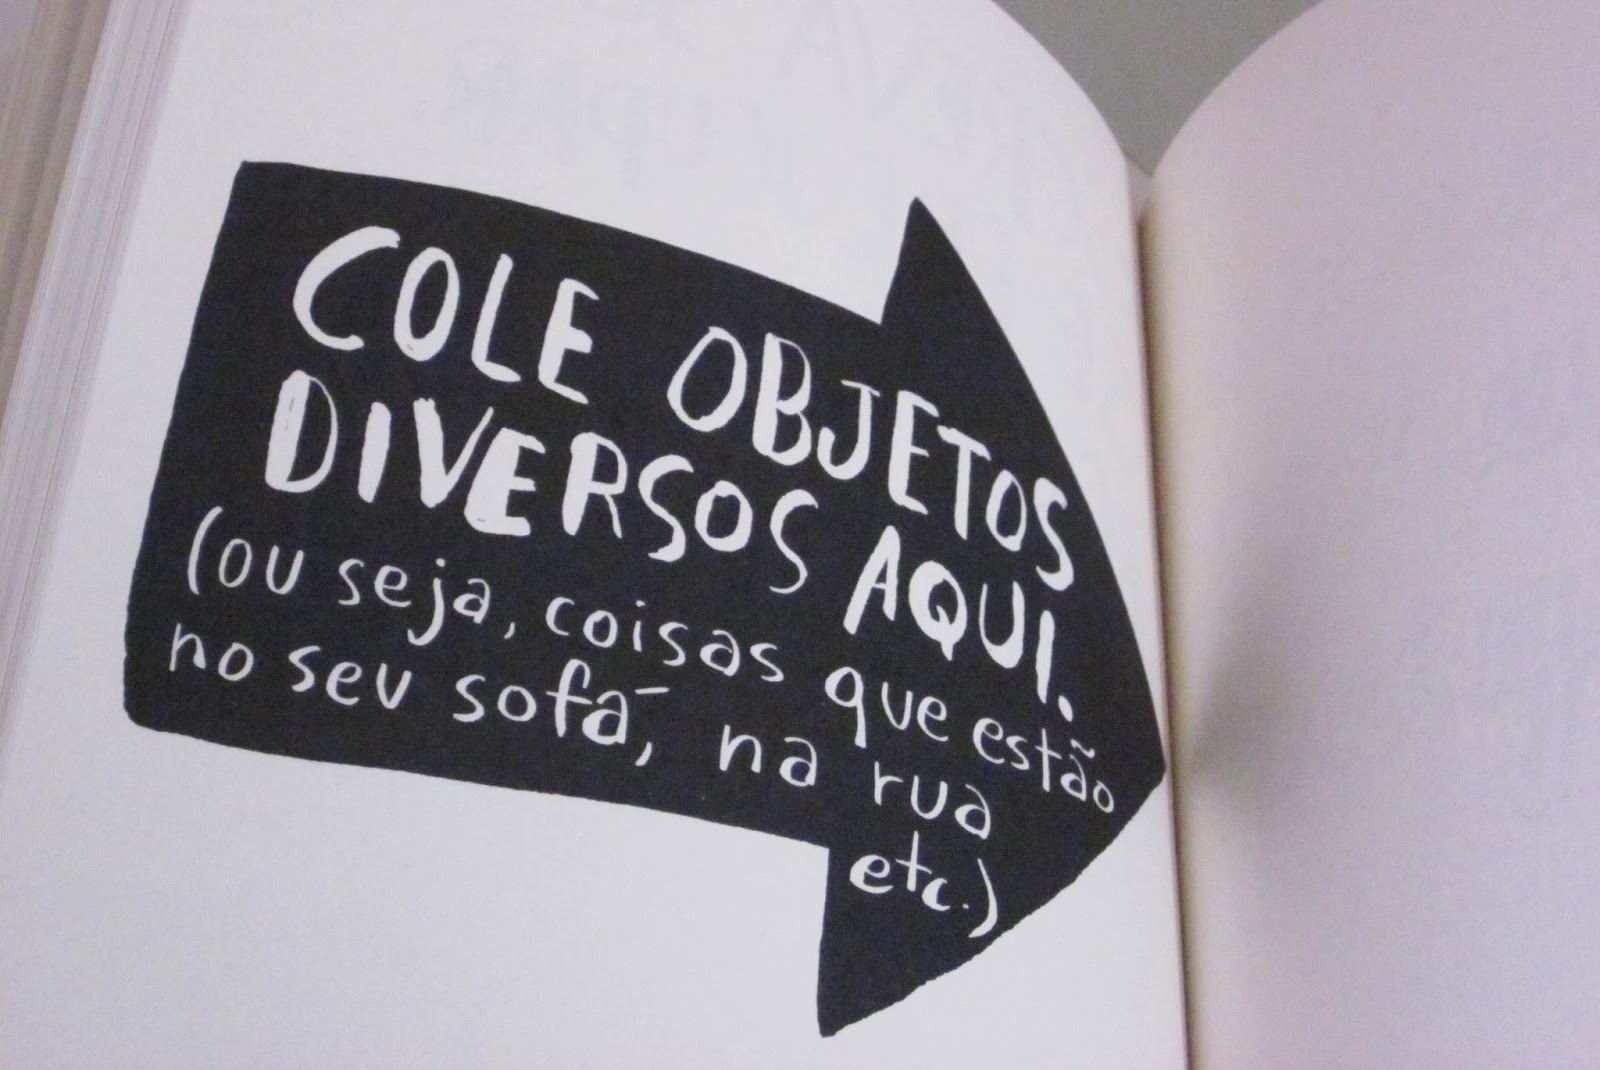 COLE OBJETOS
DIVERSOS AQUI.
(ou seja, coisas que estão
no seu sofá, na rua
etc.)